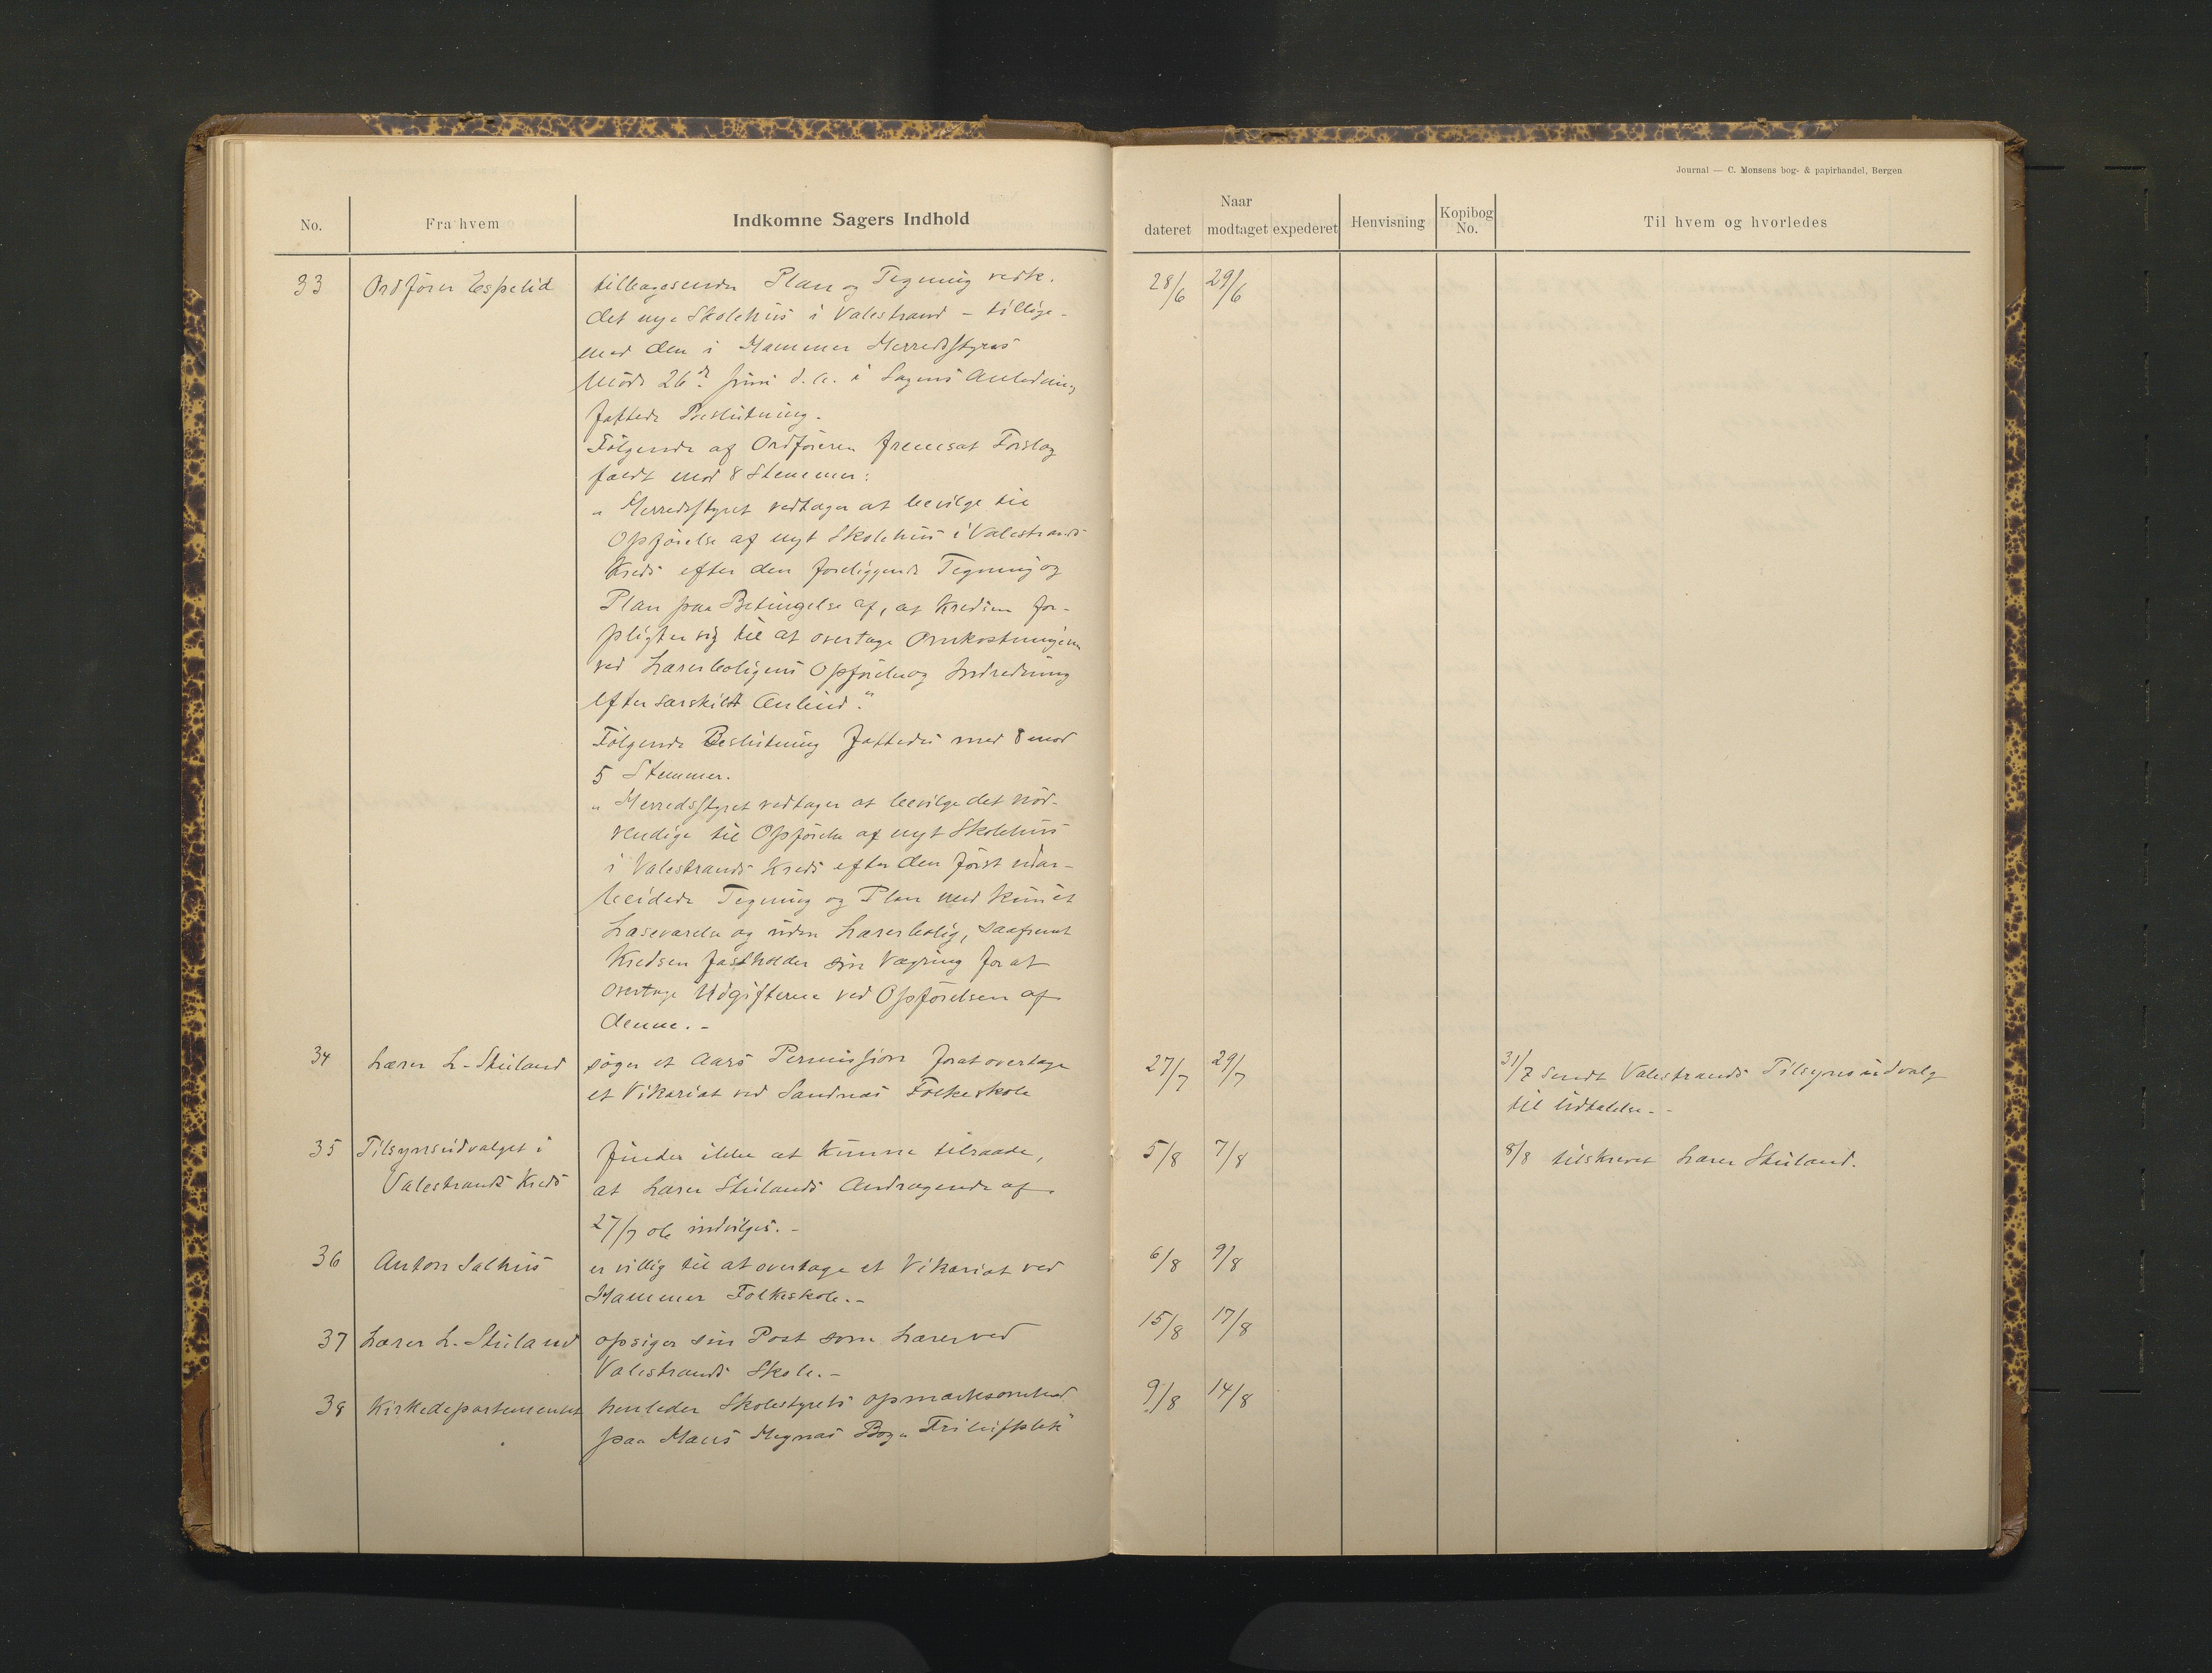 Journal — C. Monsens bog- & papirhandel, Bergen
No.
Fra hvem
Indkomne Sagers Indhold
Naar
dateret modtaget expederet
Henvisning
Kopibog No.
Til hvem og hvorledes
33 Ordfører Espelid tilbagesender Plan og Tegning vedk. 28/6 29/6
det nye Skolehus i Valestrand - tillige-
med den i Hammer Herredsstyres
Møde 26de Juni d.a. i Sagens Anledning
fattede Beslutning.
Følgende af Ordføreren fremsat Forslag
faldt mod 8 Stemmer:
"Herredsstyret vedtager at bevilge til
Opførelse af nyt Skolehus i Valestrands
Kreds efter den foreliggende Tegning og
Plan paa Betingelse af, at Kredsen for-
pligter sig til at overtage Omkostningerne
ved Lærerboligens Opførelse og Indredning
efter særskildt Anbud."
Følgende Beslutning fattedes med 8 mod
5 Stemmer.
"Herredsstyret vedtager at bevilge det nød-
vendige til Opførelse af nyt Skolehus
i Valestrands Kreds efter den først udar-
beidede Tegning og Plan med kun et
Læseværelse og uden Lærerbolig, saafremt
Kredsen fastholder sin Vægring for at
overtage Udgifterne ved Opførelsen af
denne. -
34 Lærer L. Stuland søger et Aars Permission forat overtage 27/7 29/7 31/7 sendt Valestrands Tilsynsudvalg
et Vikariat ved Sandnæs Folkeskole til Udtalelse. -
35 Tilsynsudvalget i finder ikke at kunne tilraade, 5/8 7/8 8/8 tilskrevet Lærer Stuland.
Valestrands Kreds at Lærer Stulands Andragende af
27/7 indvilges. -
36 Anton Salhus er villig til at overtage et Vikariat ved 6/8 9/8
Hammer Folkeskole. -
37 Lærer L. Stuland opsiger sin Post som Lærer ved 15/8 17/8
Valestrands Skole. -
38 Kirkedepartementet henleder Skolestyrets opmærksomhed 9/8 14/8
paa Bog